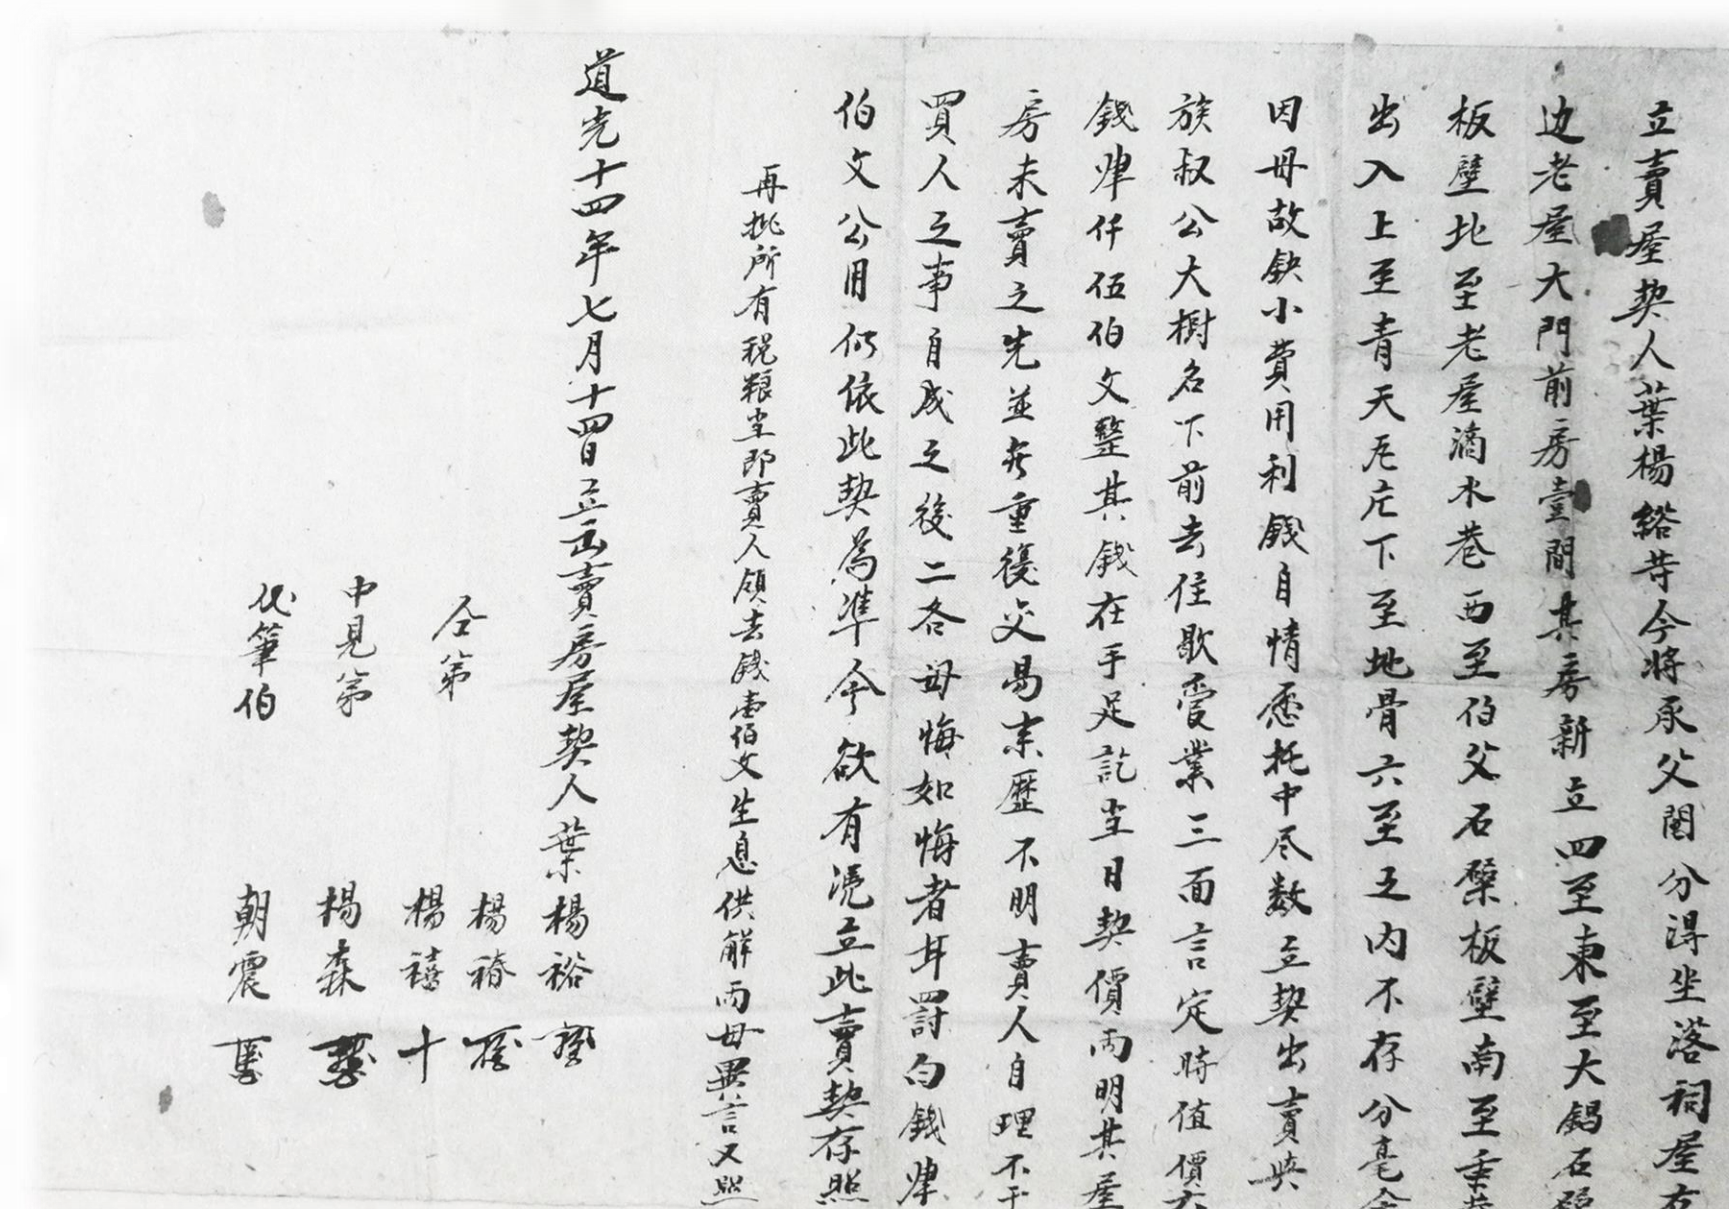 立賣屋契人葉楊綌等今将承父鬮分淂坐落祠屋右
边老屋大門前房壹間其房新立四至東至大錫石
板壁北至老屋滴水巷西至伯父石磉板壁南至
出入上至青天瓦片下至地骨六至之内不存分毫今
因母故缺小費用利錢自情愿托中尽数立契出賣與
族叔公大樹名下前去住歇管業三面言定時值價
錢肆仟伍伯文整其錢在手足訖坐日契價両明其屋
房未賣之先並無重復交昜来歴不明賣人自理不干
買人之事自成之後二各毋悔如悔者耳罰白錢肆
伯文公用仍依此契為準今欲有凴立此賣契存照
再批所有税粮坐即賣人領去錢壹伯文生息供解両毋異言又照
道光十四年七月十四日立出賣房屋契人葉楊裕
仝弟 楊禧
中見弟 楊森
代筆伯 朝震